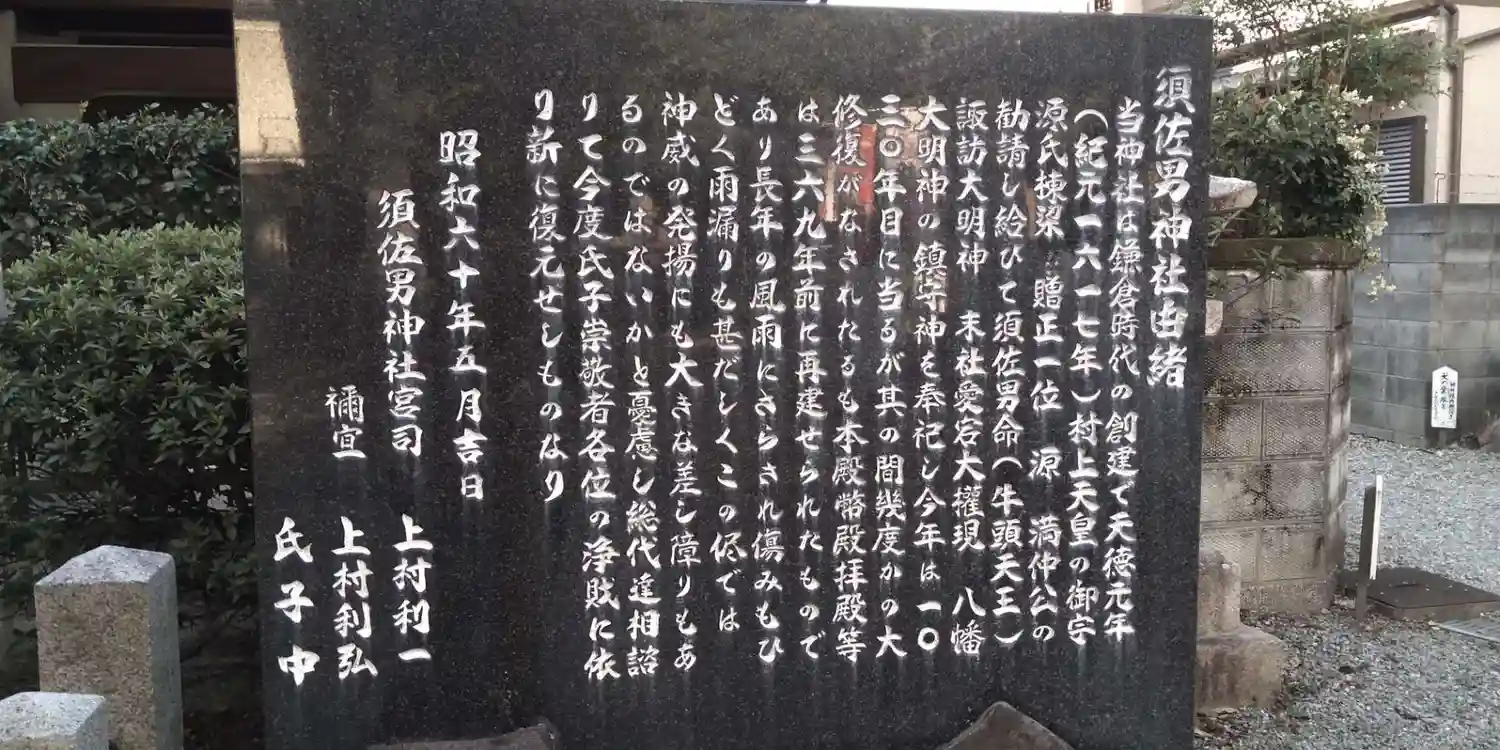 須佐男神社由緒
当神社は鎌倉時代の創建で天徳元年
（紀元一六一七年）村上天皇の御宇
源氏棟梁 贈正一位 源 満仲公の
勧請し給ひて須佐男命（牛頭天王）
諏訪大明神 末社愛宕大権現 八幡
大明神の鎮守神を奉祀し今年は一〇
三〇年目に当るが其の間幾度かの大
修復がなされたるも本殿幣殿拝殿等
は三六九年前に再建せられたもので
あり長年の風雨にさらされ傷みもひ
どく雨漏りも甚だしくこの侭では
神威の発揚にも大きな差し障りもあ
るのではないかと憂慮し総代達相諮
りて今度氏子崇敬者各位の浄財に依
り新に復元せしものなり
昭和六十年五月吉日
須佐男神社宮司 上村利一
禰宜 上村利弘
氏子中